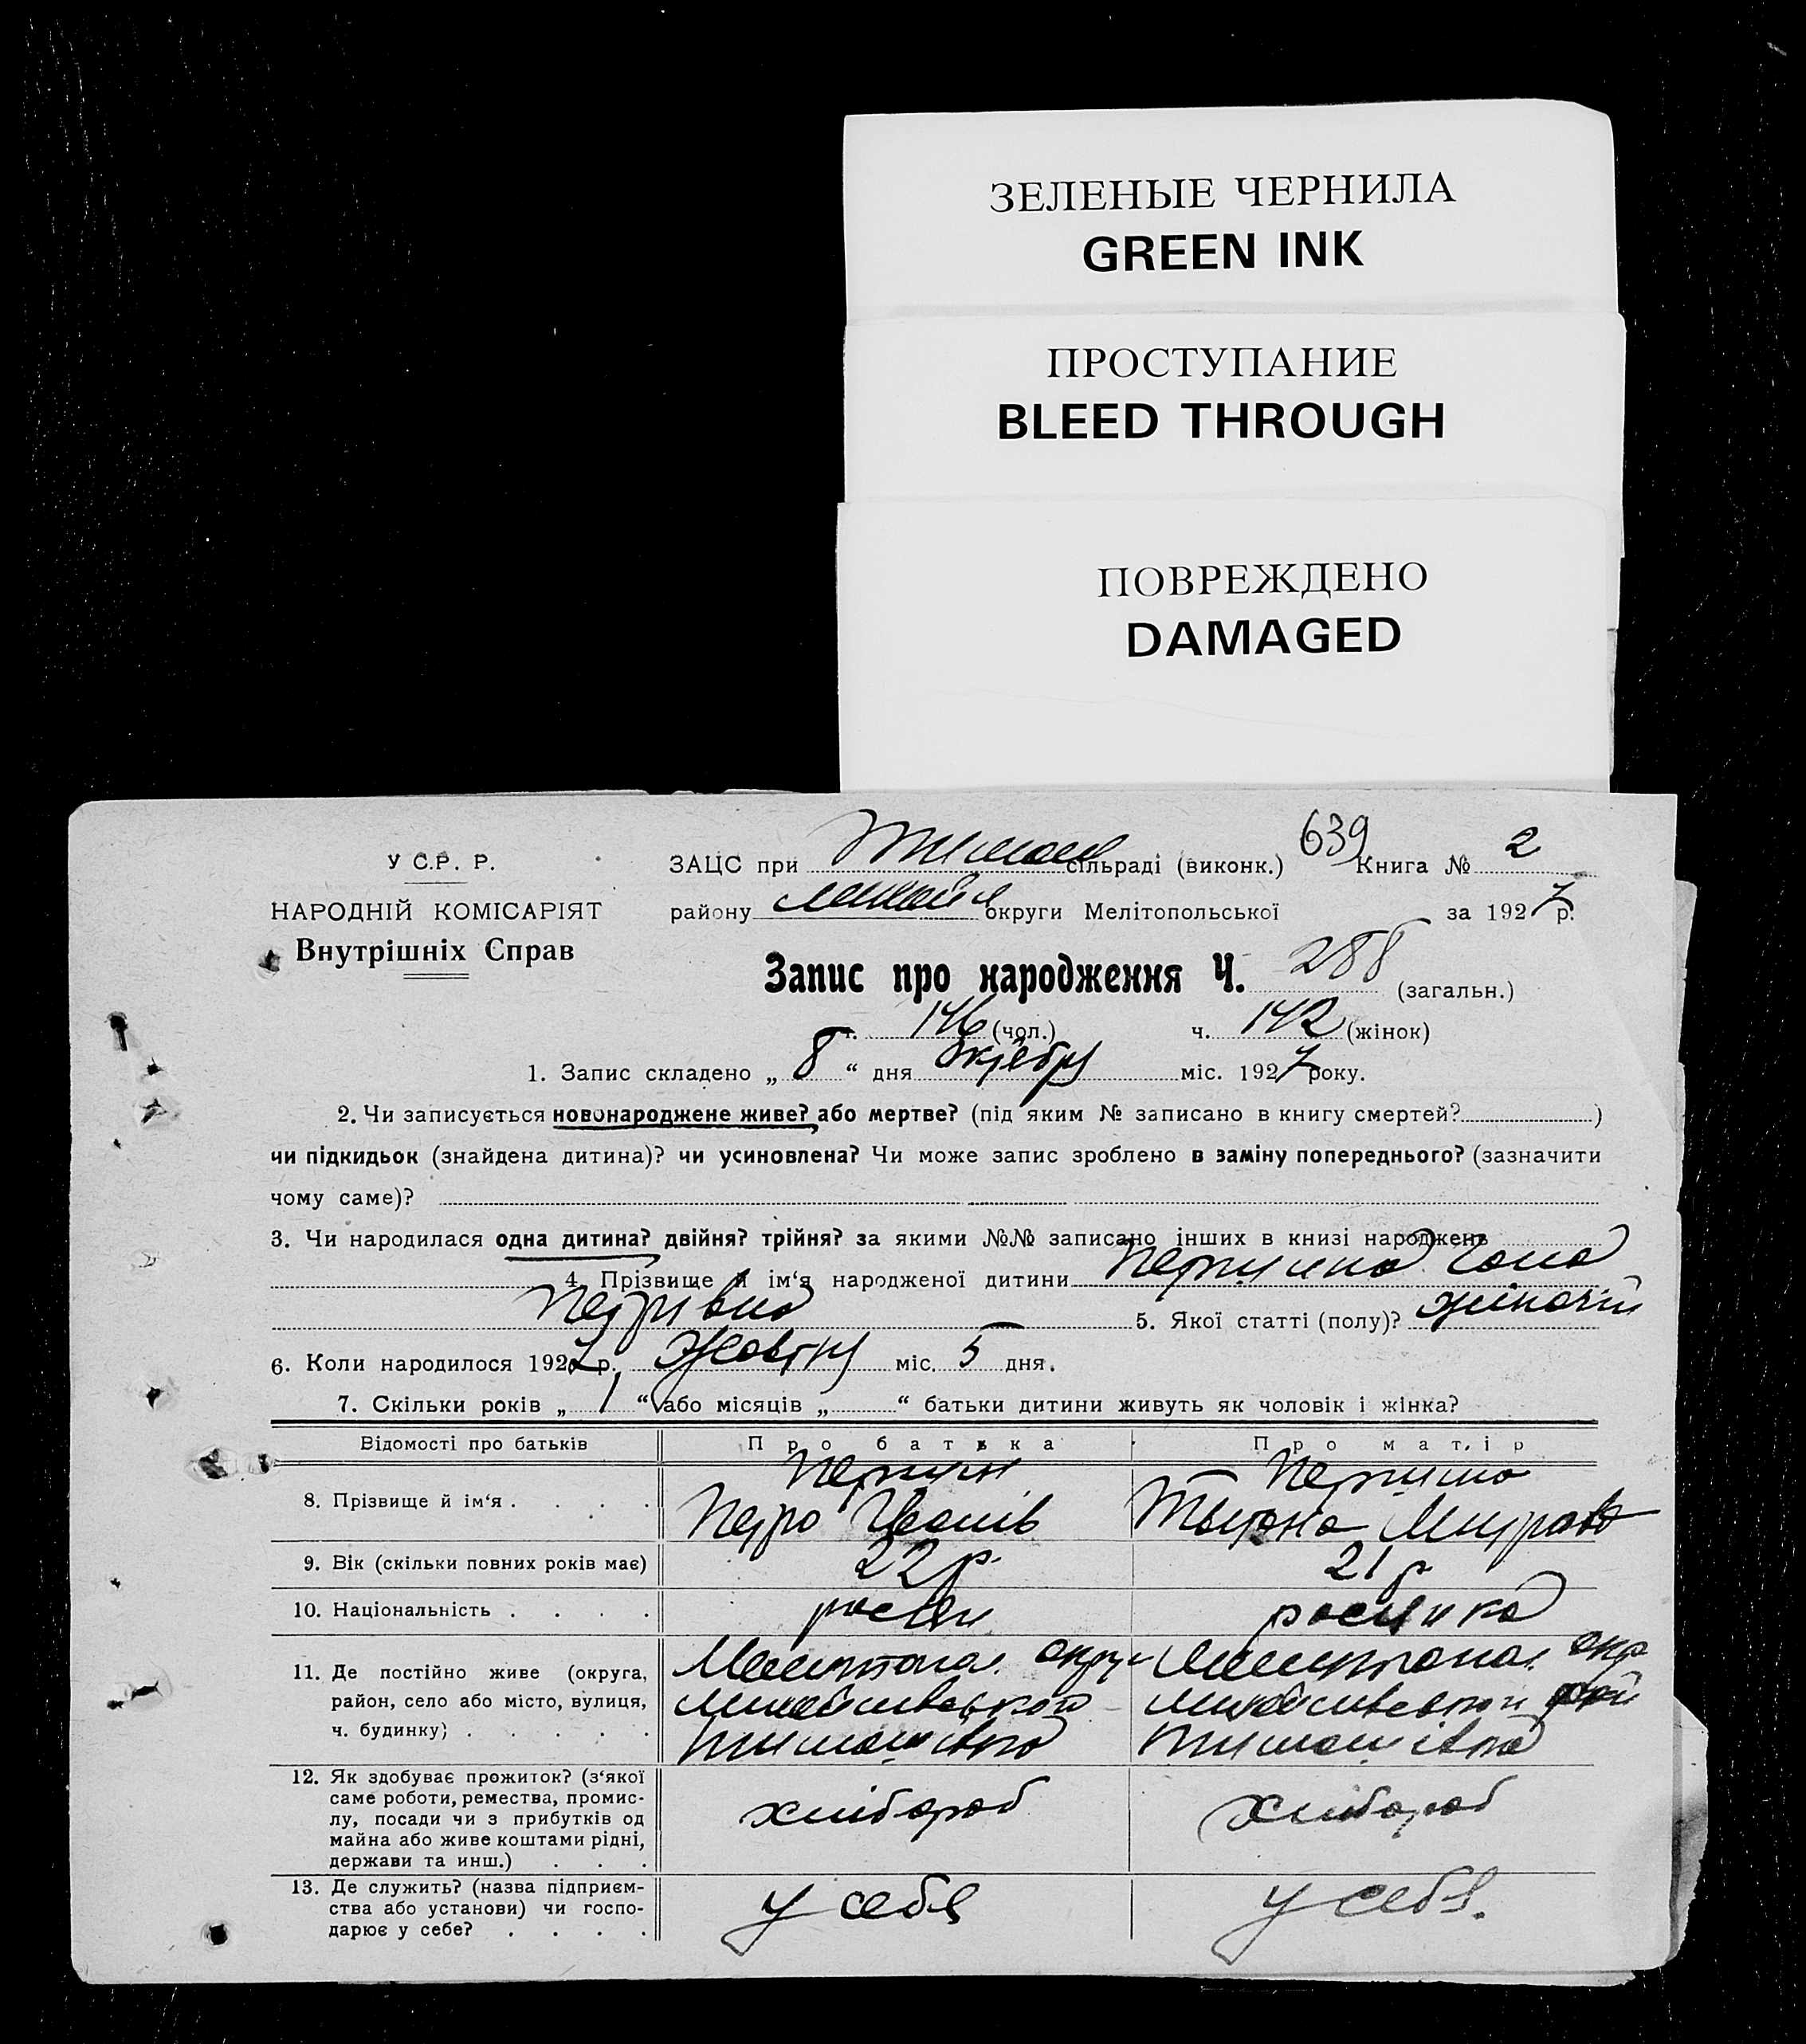 ЗЕЛЕНЫЕ ЧЕРНИЛА
GREEN INK
ПРОСТУПАНИЕ
BLEED THROUGH
ПОВРЕЖДЕНО
DAMAGED
639
У С.Р. Р.
НАРОДНІЙ КОМІСАРІЯТ
Внутрішніх Справ
ЗАЦС при Тимош сільраді (виконк.) Книга № 2
району округи Мелітопольської за 1927 р.
Запис про народження Ч. 288 (загальн.)
ч. 146 (чол.) ч. 142 (жінок)
1. Запис складено „ 8 “ дня Октебря міс. 1927 року.
2. Чи записується новонароджене живе? або мертве? (під яким № записано в книгу смертей? )
чи підкидьок (знайдена дитина)? чи усиновлена? Чи може запис зроблено в заміну попереднього? (зазначити
чому саме)?
3. Чи народилася одна дитина? двійня? трійня? за якими №№ записано інших в книзі народжень
4. Прізвище й ім‘я народженої дитини
Петрівна 5. Якої статті (полу)? жіночій
6. Коли народилося 1927 р. Жовтня міс. 5 дня.
7. Скільки років „ 1 “ або місяців „ “ батьки дитини живуть як чоловік і жінка?
Відомості про батьків Про батька Про матір
8. Прізвище й ім‘я . . . .
Петро Іванів
9. Вік (скільки повних років має) 22 р. 21 р
10. Національність . . . . росіян росіянка
11. Де постійно живе (округа,
район, село або місто, вулиця,
ч. будинку) . . . . .
Мелитопол. округ
Тимошівка Тимошівка
12. Як здобуває прожиток? (з‘якої
саме роботи, ремества, промис-
лу, посади чи з прибутків од
майна або живе коштами рідні,
держави та инш.) . . .
хлібороб хлібороб
13. Де служить? (назва підприєм-
ства або установи) чи госпо-
дарює у себе? . . . .
у себя у себя.